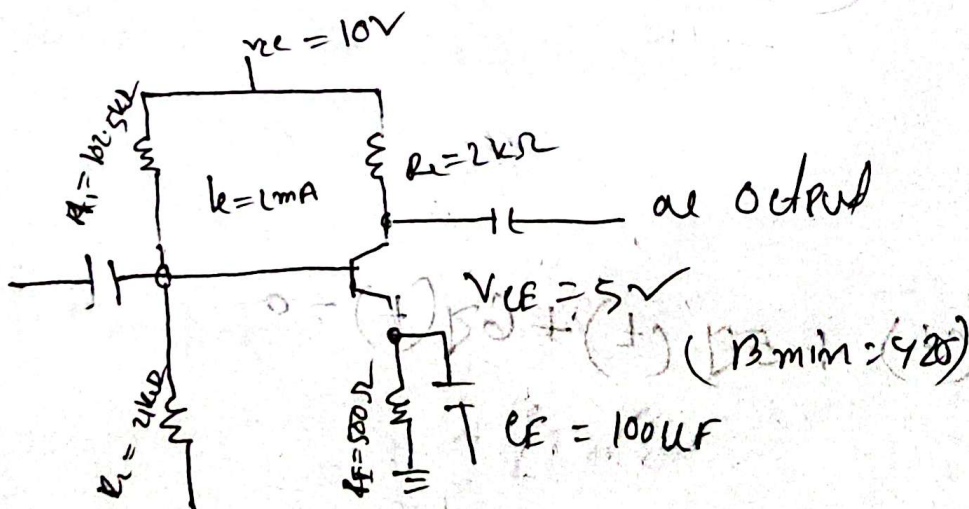 Vcc = 10V
R1 = 102.5kΩ
RL = 2kΩ
Ic = 1mA
ac output
VCE = 5V
(B min = 425)
R2 = 21kΩ
RE = 500Ω
CE = 100uF